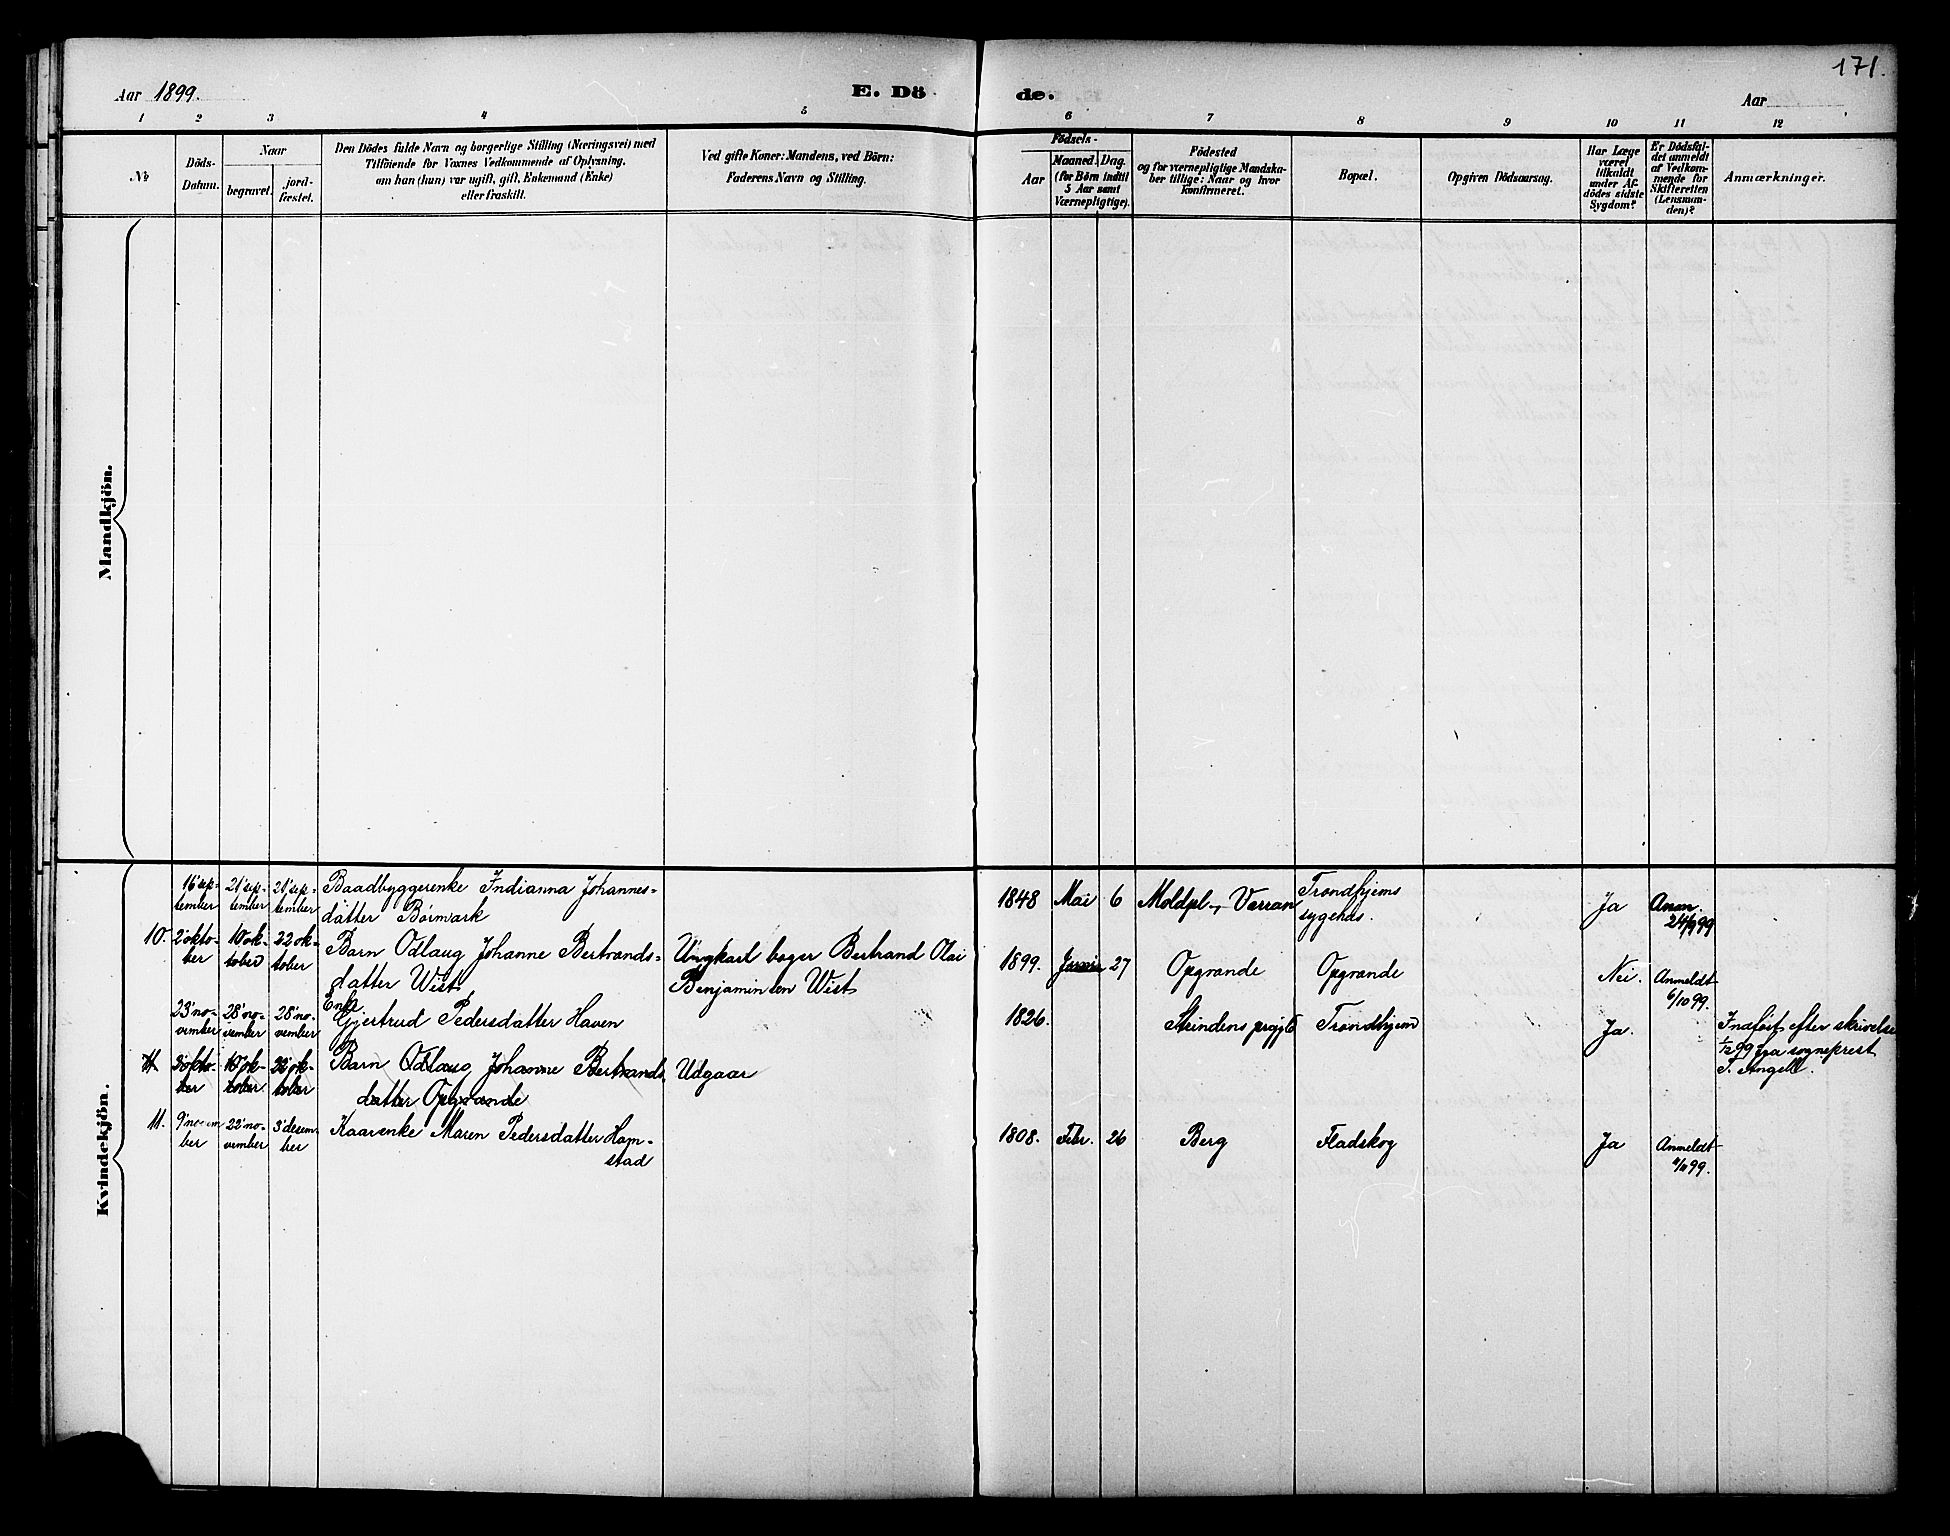 171.
Aar 1899.
E. Dö
de.
Aar
1 2 3 4 5 6 7 8 9 10 11 12
No
Döds-
Datum.
Naar
begravet.
jord-
fæstet.
Den Dödes fulde Navn og borgerlige Stilling (Næringsvei) med
Tilföiende for Voxnes Vedkommende af Oplysning,
om han (hun) var ugift, gift, Enkemand (Enke)
eller fraskilt.
Ved gifte Koner: Mandens, ved Börn:
Faderens Navn og Stilling.
Födsels-
Aar
Maaned. Dag.
(for Börn indtil
5 Aar samt
Værnepligtige).
Födested
og for værnepligtige Mandska-
ber tillige: Naar og hvor
konfirmeret.
Bopæl.
Opgiven Dödsaarsag.
Har Læge
været
tilkaldt
under Af-
dödes sidste
Sygdom?
Er Dödsfal-
det anmeldt
af Vedkom-
mende for
Skifteretten
(Lensman-
den)?
Anmærkninger.
Mandkjön.
Kvindekjön.
16' sep-
tember
21' sep-
tember
21' sep-
tember
Baadbyggerenke Indianna Johannes-
datter Börmark
1848 Mai 6
Moldpl., Verran
Trondhjems
sygehus.
Ja
Anm.
24/9 99
10.
2' okto-
ber
10' ok-
tober
22' ok-
tober
Barn Odlaug Johanne Bertrands-
datter Wist
Ungkarl bager Bertrand Olai
Benjaminsen Wist
1899. 27
Opgrande
Opgrande
Nei.
Anmeldt
6/10 99.
23' no-
vember
28' no-
vember
28' no-
vember
Enke
Gjertrud Pedersdatter Haven
1826.
Trondhjem
Ja.
Indfört efter skrivelse
1/12 99 fra sogneprest
T. Angell.
11
2' okto-
ber
10' ok-
tober
22' ok-
tober
Barn Odlaug Johanne Bertrands-
datter Opgrande
Udgaar
11.
9' novem
ber
22' no-
vember
3' desem-
ber
Kaarenke Maren Pedersdatter Ham-
stad
1808. Febr. 26
Berg
Fladskog
Ja
Anmeldt
11/11 99.